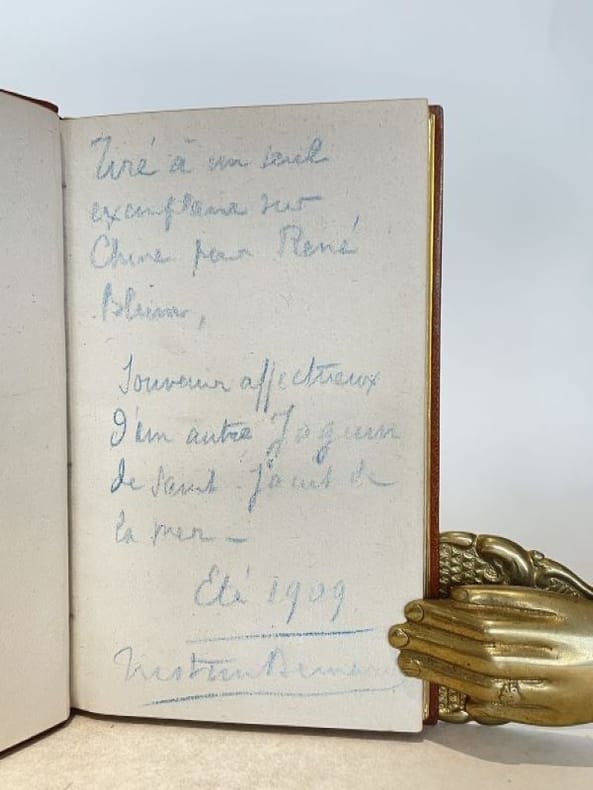 Tiré à un seul
exemplaire sur
Chine pour René
Blum,
Souvenir affectueux
d'un autre Jaguin
de Saint-Jacut de
la mer –
Eté 1909
Tristan Bernard